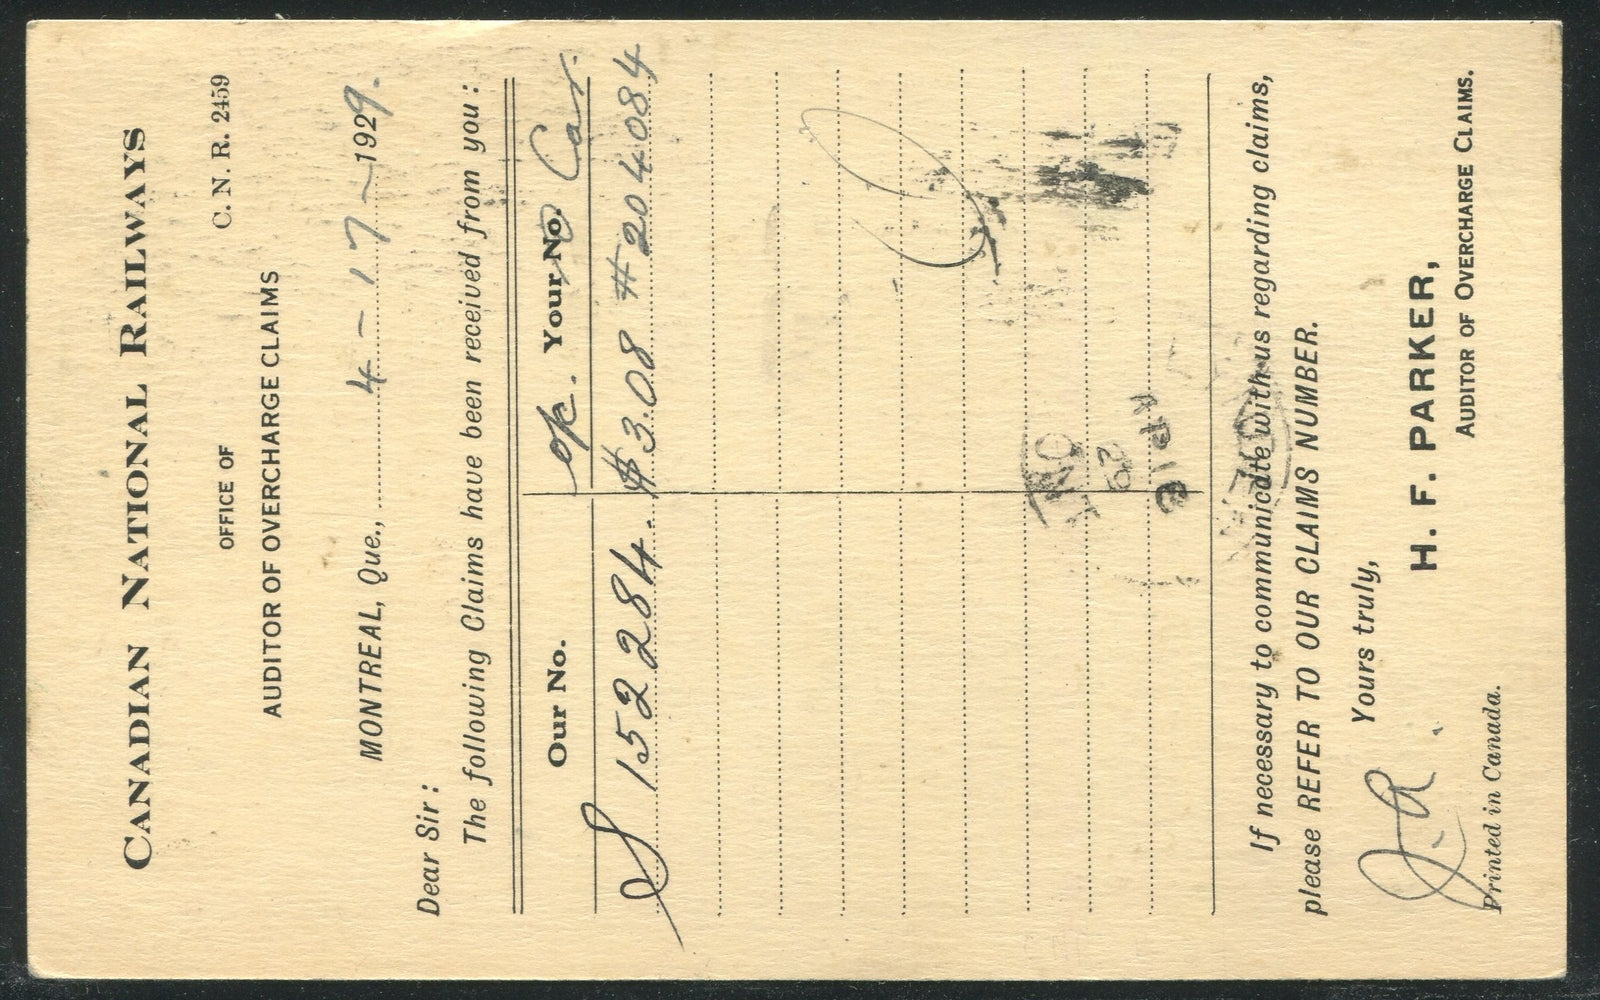 CANADIAN NATIONAL RAILWAYS
C. N. R. 2459
OFFICE OF
AUDITOR OF OVERCHARGE CLAIMS
MONTREAL, Que., 4 - 17 - 1929.
Dear Sir:
The following Claims have been received from you:
Our No. Your No. Car.
S 152284. $3.08 #204084
If necessary to communicate with us regarding claims,
please REFER TO OUR CLAIMS NUMBER.
Yours truly,
H. F. PARKER,
AUDITOR OF OVERCHARGE CLAIMS.
Printed in Canada.